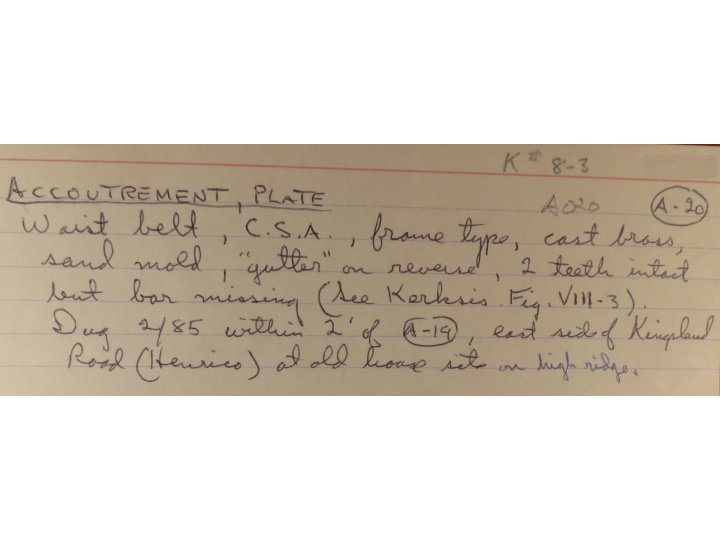 K# 8-3
ACCOUTREMENT, PLATE
A020 A-20
Waist belt, C.S.A., frame type, cast brass,
sand mold, "gutter" on reverse, 2 teeth intact
but bar missing (See Kerksis Fig. VIII-3).
Dug 2/85 within 2' of A-19, east side of Kingsland
Road (Henrico) at old house site on high ridge.